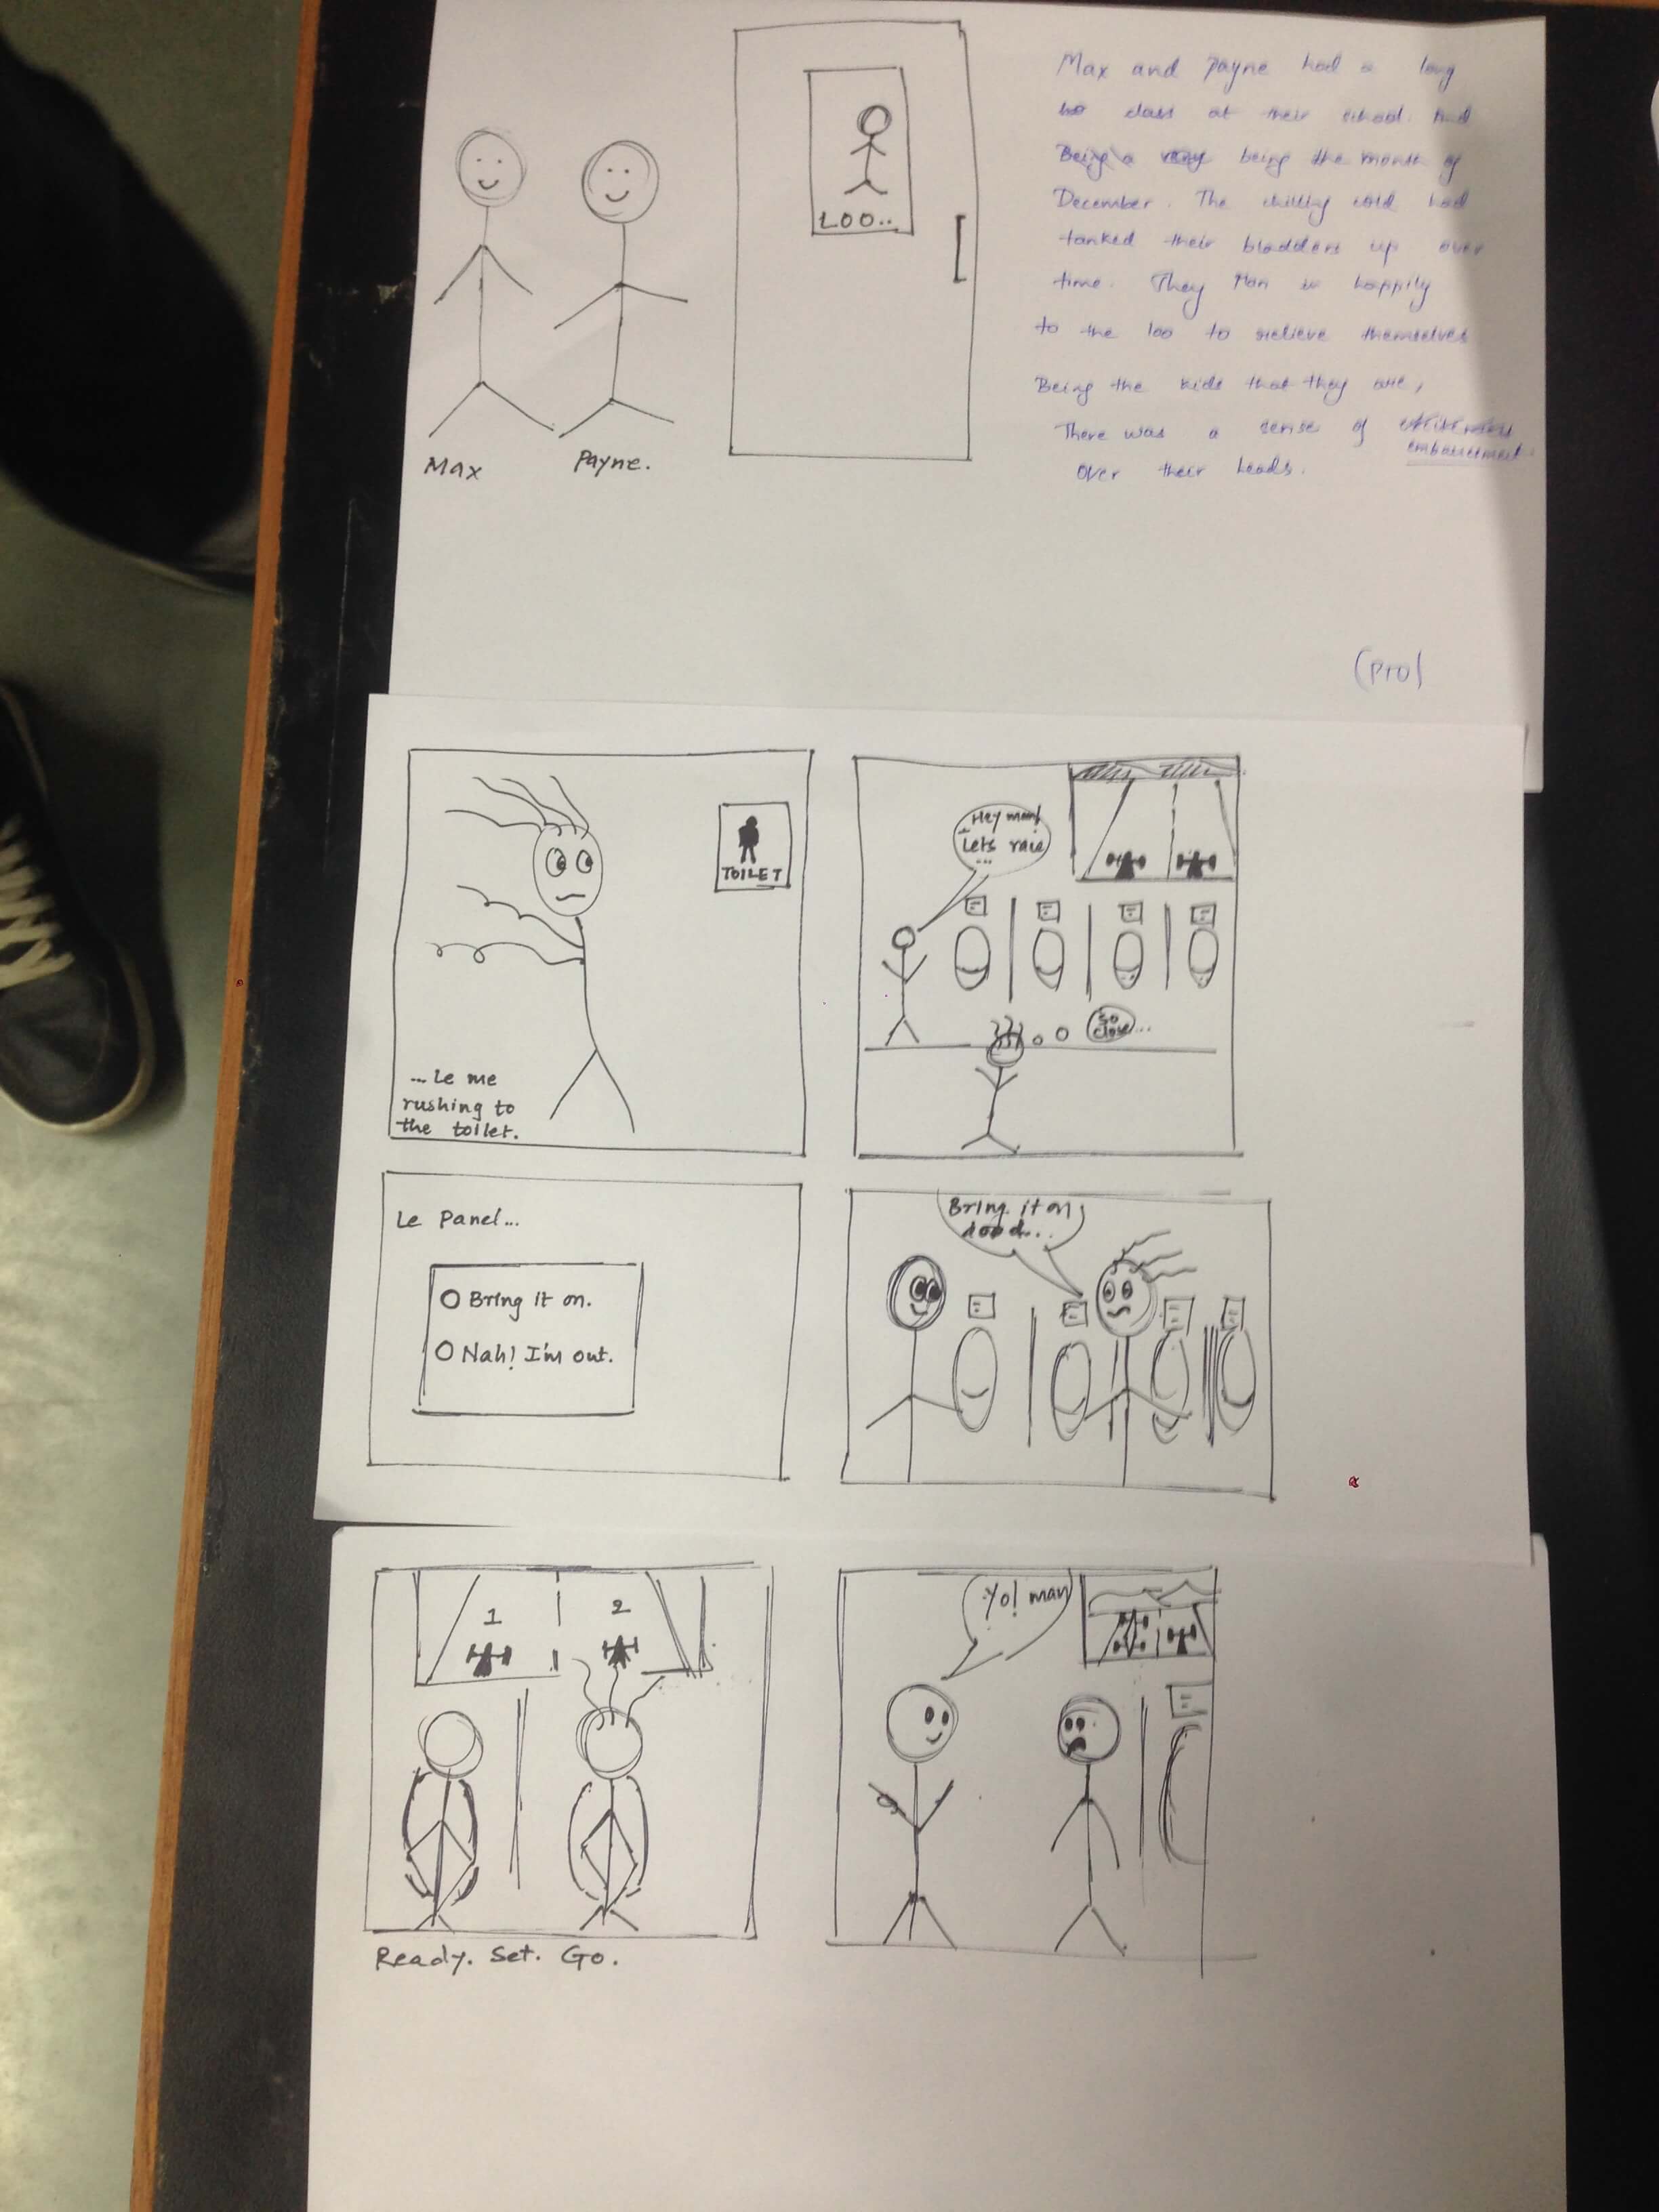 LOO..
Max
Payne.
Max and Payne had a long
class at their school. And
being the month of
December. The chilling cold had
tanked their bladders up over
time. They ran happily
to the loo to relieve themselves
Being the kids that they are,
There was a sense of
embarrsment.
over their heads.
TOILET
... Le me
rushing to
the toilet.
Hey man!
Lets race
...
So
close...
Le Panel...
Bring it on.
Nah! I'm out.
Bring it on
dood...
1 2
Ready. Set. Go.
Yo! man